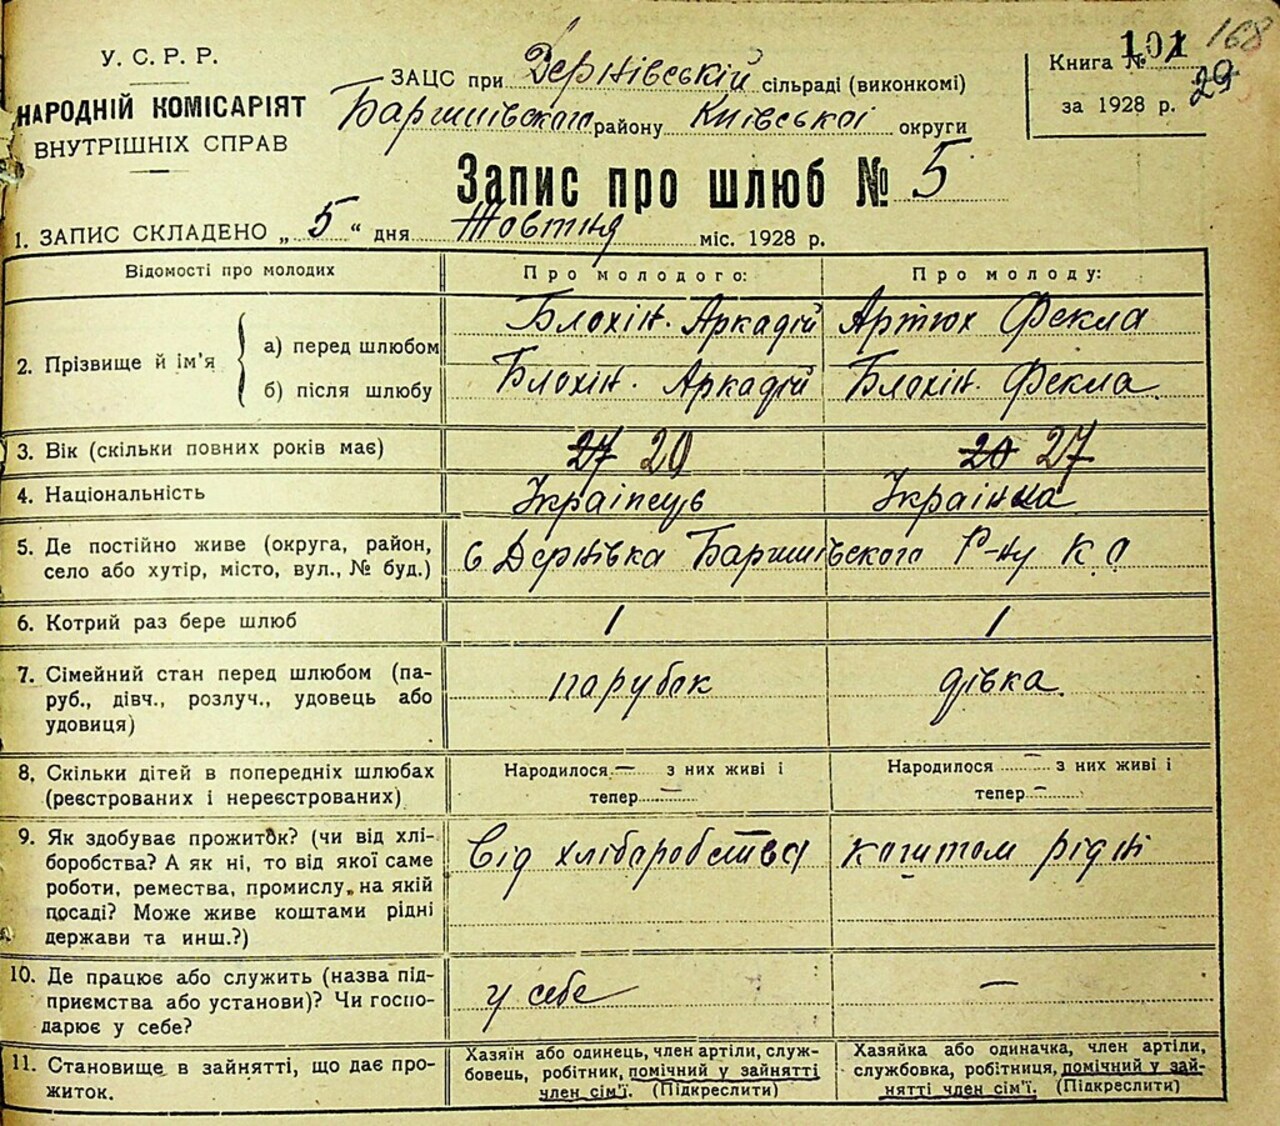 У. С. Р. Р.
НАРОДНІЙ КОМІСАРІЯТ
ВНУТРІШНІХ СПРАВ
ЗАЦС при Дернівській сільраді (виконкомі)
району Київської округи
101 168
Книга № 29
за 1928 р.
Запис про шлюб № 5
1. ЗАПИС СКЛАДЕНО „ 5 “ дня Жовтня міс. 1928 р.
Відомості про молодих Про молодого: Про молоду:
2. Прізвище й ім’я
а) перед шлюбом Блохін. Аркадій Артюх Фекла
б) після шлюбу Блохін. Аркадій Блохін. Фекла
3. Вік (скільки повних років має) 27 20 20 27
4. Національність Українець Українка
5. Де постійно живе (округа, район,
село або хутір, місто, вул., № буд.) с Дернівка Р-ну К. О
6. Котрий раз бере шлюб 1 1
7. Сімейний стан перед шлюбом (па-
руб., дівч., розлуч., удовець або
удовиця) парубок дівка.
8. Скільки дітей в попередніх шлюбах
(реєстрованих і нереєстрованих)
Народилося — з них живі і
тепер —
Народилося — з них живі і
тепер —
9. Як здобуває прожиток? (чи від хлі-
боробства? А як ні, то від якої саме
роботи, ремества, промислу, на якій
посаді? Може живе коштами рідні
держави та инш.?)
від хліборобства коштом рідні
10. Де працює або служить (назва під-
приємства або установи)? Чи госпо-
дарює у себе?
у себе —
11. Становище в зайнятті, що дає про-
житок.
Хазяїн або одинець, член артіли, служ-
бовець, робітник, помічний у зайнятті
член сім’ї. (Підкреслити)
Хазяйка або одиначка, член артіли,
службовка, робітниця, помічний у зай-
нятті член сім’ї. (Підкреслити)